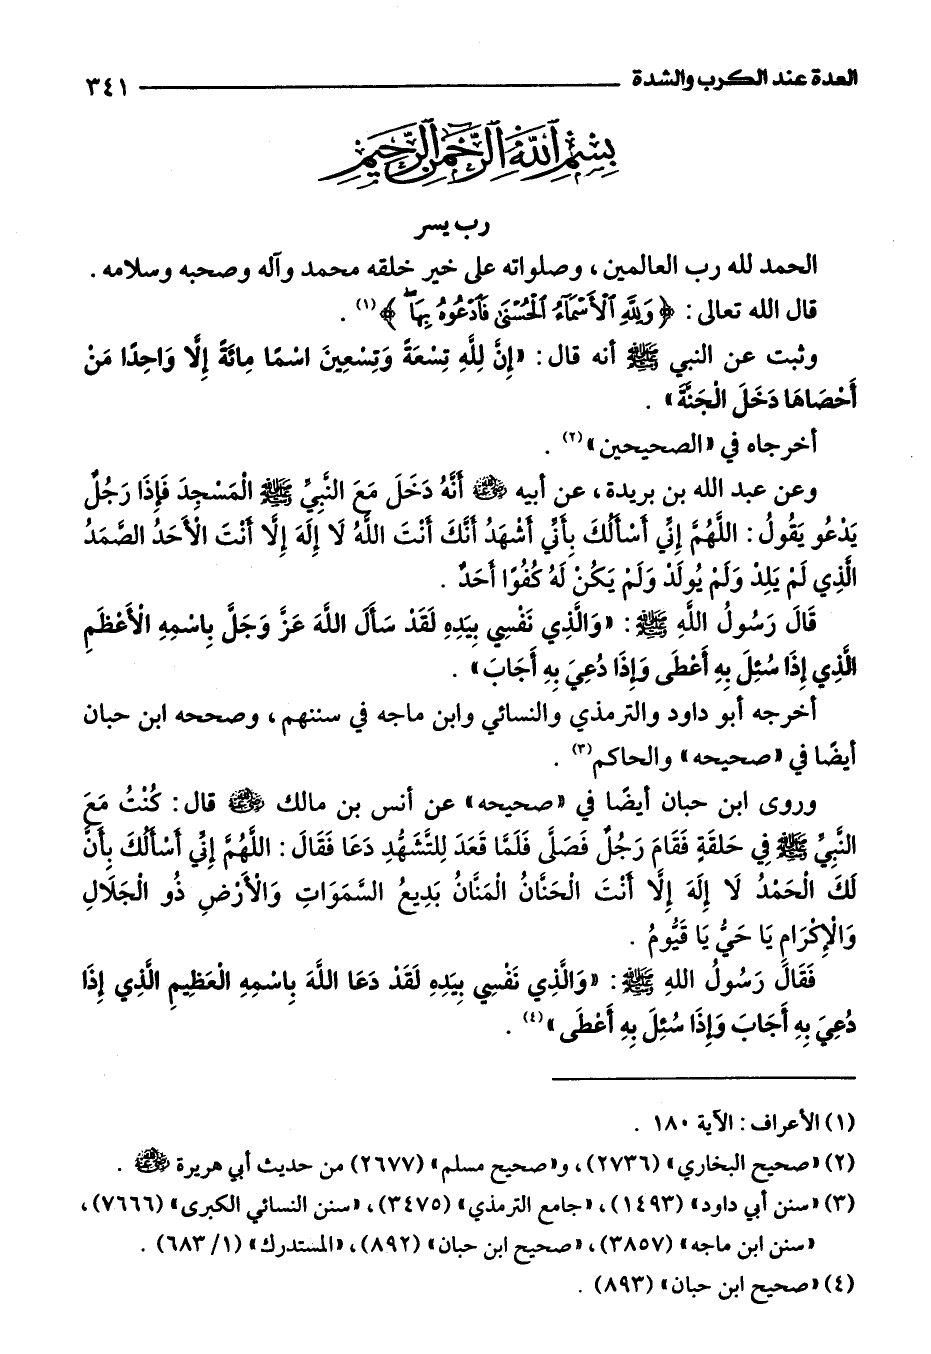 العدة عند الكرب والشدة ٣٤١
بِسْمِ ٱللَّهِ ٱلرَّحْمَٰنِ ٱلرَّحِيمِ
رب يسر
الحمد لله رب العالمين، وصلواته على خير خلقه محمد وآله وصحبه وسلامه.
قال الله تعالى: ﴿وَلِلَّهِ ٱلْأَسْمَآءُ ٱلْحُسْنَىٰ فَٱدْعُوهُ بِهَا ۖ﴾(١).
وثبت عن النبي ﷺ أنه قال: «إِنَّ لِلَّهِ تِسْعَةً وَتِسْعِينَ اسْمًا مِائَةً إِلَّا وَاحِدًا مَنْ
أَحْصَاهَا دَخَلَ الْجَنَّةَ».
أخرجاه في «الصحيحين»(٢).
وعن عبد الله بن بريدة، عن أبيه رضي الله عنه أَنَّهُ دَخَلَ مَعَ النَّبِيِّ ﷺ الْمَسْجِدَ فَإِذَا رَجُلٌ
يَدْعُو يَقُولُ: اللَّهُمَّ إِنِّي أَسْأَلُكَ بِأَنِّي أَشْهَدُ أَنَّكَ أَنْتَ اللَّهُ لَا إِلَهَ إِلَّا أَنْتَ الْأَحَدُ الصَّمَدُ
الَّذِي لَمْ يَلِدْ وَلَمْ يُولَدْ وَلَمْ يَكُنْ لَهُ كُفُوًا أَحَدٌ.
قَالَ رَسُولُ اللَّهِ ﷺ: «وَالَّذِي نَفْسِي بِيَدِهِ لَقَدْ سَأَلَ اللَّهَ عَزَّ وَجَلَّ بِاسْمِهِ الْأَعْظَمِ
الَّذِي إِذَا سُئِلَ بِهِ أَعْطَى وَإِذَا دُعِيَ بِهِ أَجَابَ».
أخرجه أبو داود والترمذي والنسائي وابن ماجه في سننهم، وصححه ابن حبان
أيضًا في «صحيحه» والحاكم(٣).
وروى ابن حبان أيضًا في «صحيحه» عن أنس بن مالك رضي الله عنه قال: كُنْتُ مَعَ
النَّبِيِّ ﷺ فِي حَلَقَةٍ فَقَامَ رَجُلٌ فَصَلَّى فَلَمَّا قَعَدَ لِلتَّشَهُّدِ دَعَا فَقَالَ: اللَّهُمَّ إِنِّي أَسْأَلُكَ بِأَنَّ
لَكَ الْحَمْدُ لَا إِلَهَ إِلَّا أَنْتَ الْحَنَّانُ الْمَنَّانُ بَدِيعُ السَّمَوَاتِ وَالْأَرْضِ ذُو الْجَلَالِ
وَالْإِكْرَامِ يَا حَيُّ يَا قَيُّومُ.
فَقَالَ رَسُولُ اللهِ ﷺ: «وَالَّذِي نَفْسِي بِيَدِهِ لَقَدْ دَعَا اللَّهَ بِاسْمِهِ الْعَظِيمِ الَّذِي إِذَا
دُعِيَ بِهِ أَجَابَ وَإِذَا سُئِلَ بِهِ أَعْطَى»(٤).
(١) الأعراف: الآية ١٨٠.
(٢) «صحيح البخاري» (٢٧٣٦)، و«صحيح مسلم» (٢٦٧٧) من حديث أبي هريرة رضي الله عنه.
(٣) «سنن أبي داود» (١٤٩٣)، «جامع الترمذي» (٣٤٧٥)، «سنن النسائي الكبرى» (٧٦٦٦)،
«سنن ابن ماجه» (٣٨٥٧)، «صحيح ابن حبان» (٨٩٢)، «المستدرك» (١/ ٦٨٣).
(٤) «صحيح ابن حبان» (٨٩٣).